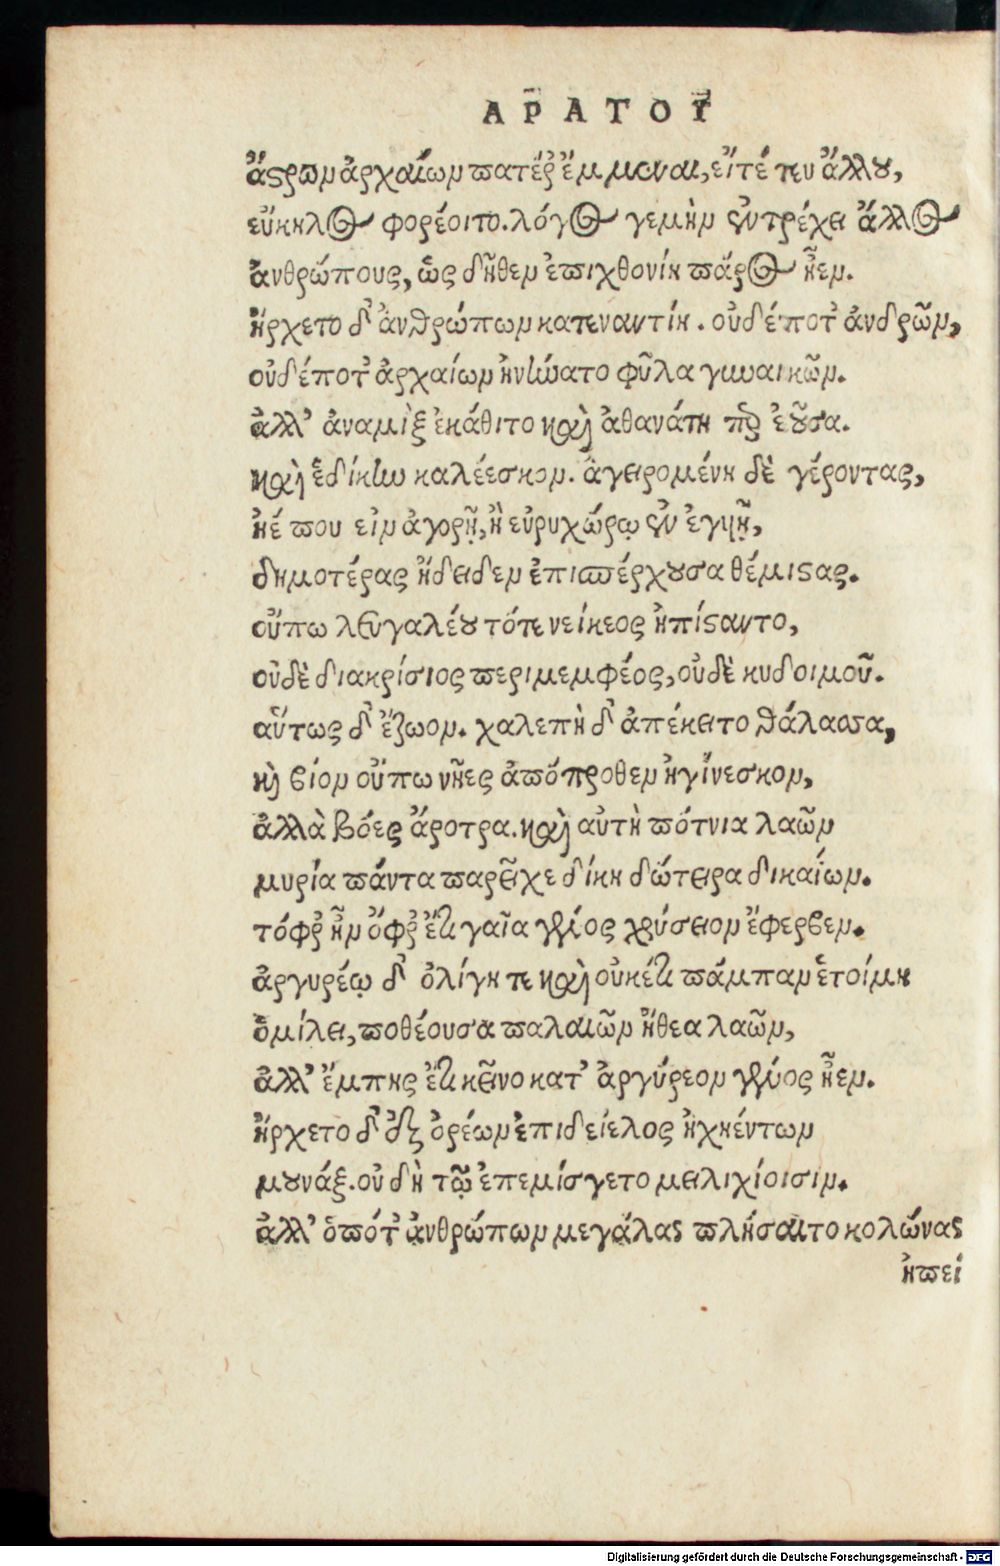 ΑΡΑΤΟΥ
ἄστρων ἀρχαίων πατέρ' ἔμμεναι, εἴτέ τευ ἄλλου,
εὔκηλος φορέοιτο. λόγος γεμὴν ἐντρέχει ἄλλος
ἀνθρώπους, ὡς δῆθεν ἐπιχθονίη πάρος ἦεν.
ἤρχετο δ' ἀνθρώπων κατεναντίη. οὐδέποτ' ἀνδρῶν,
οὐδέποτ' ἀρχαίων ἠνήνατο φῦλα γυναικῶν.
ἀλλ' ἀναμὶξ ἐκάθιτο καὶ ἀθανάτη περ ἐοῦσα.
καὶ ἑ δίκην καλέεσκον. ἀγειρομένη δὲ γέροντας,
ἠέ που εἰν ἀγορῇ, ἢ εὐρυχώρῳ ἐν ἐγυῇ,
δημοτέρας ἤδειδεν ἐπισπέρχουσα θέμιστας.
οὔπω λευγαλέου τότε νείκεος ἠπίσταντο,
οὐδὲ διακρίσιος περιμεμφέος, οὐδὲ κυδοιμοῦ.
αὕτως δ' ἔζωον. χαλεπὴ δ' ἀπέκειτο θάλασσα,
καὶ βίον οὔπω νῆες ἀπόπροθεν ἠγίνεσκον,
ἀλλὰ βόες ἄροτρα. καὶ αὐτὴ πότνια λαῶν
μυρία πάντα παρεῖχε δίκη δώτειρα δικαίων.
τόφρ' ἦν ὄφρ' ἔτι γαῖα γένος χρύσειον ἔφερβεν.
ἀργυρέῳ δ' ὀλίγη τε καὶ οὐκέτι πάμπαν ἑτοίμη
ὁμίλει, ποθέουσα παλαιῶν ἤθεα λαῶν,
ἀλλ' ἔμπης ἔτι κεῖνο κατ' ἀργύρεον γένος ἦεν.
ἤρχετο δ' ἐξ ὀρέων ἐπιδείελος ἠχηέντων
μουνάξ. οὐδὴ τῷ ἐπεμίσγετο μειλιχίοισιν.
ἀλλ' ὁπότ' ἀνθρώπων μεγάλας πλήσαιτο κολώνας
ἠπεί
Digitalisierung gefördert durch die Deutsche Forschungsgemeinschaft - DFG